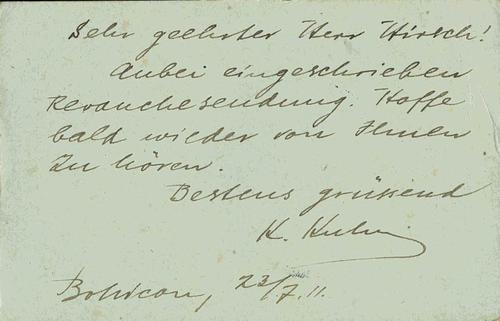 Sehr geehrter Herr Hirsch!
Anbei eingeschrieben
Revanchesendung. Hoffe
bald wieder von Ihnen
zu hören.
Bestens grüssend
K. Kuhn
Bohicon, 23/7.11.